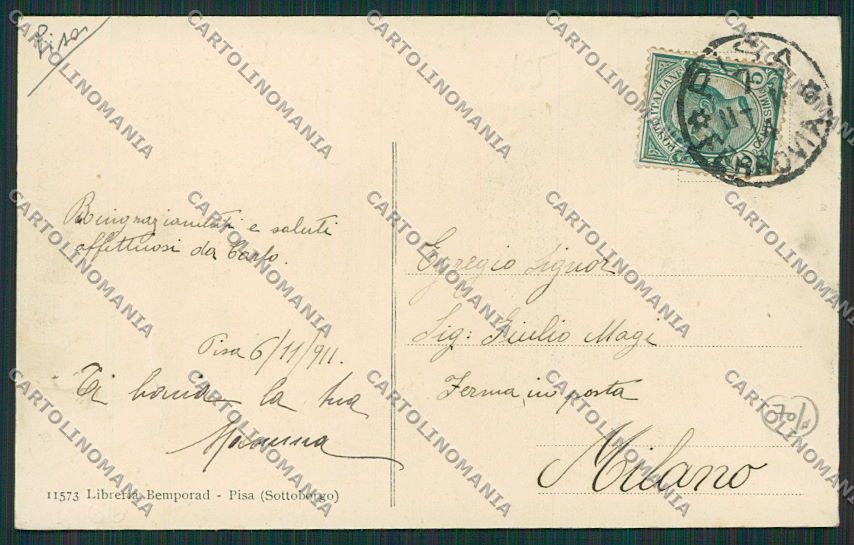 Pisa
Ringraziamenti e saluti
affettuosi da Carlo.
Pisa 6/11/911.
Ti bacia la tua
Mammina
11573 Libreria Bemporad - Pisa (Sottoborgo)
POSTE ITALIANE
PISA
FERROVIA
Egregio Signor
Sig: Giulio Magi
Ferma in posta
Milano
70/
CARTOLINOMANIA